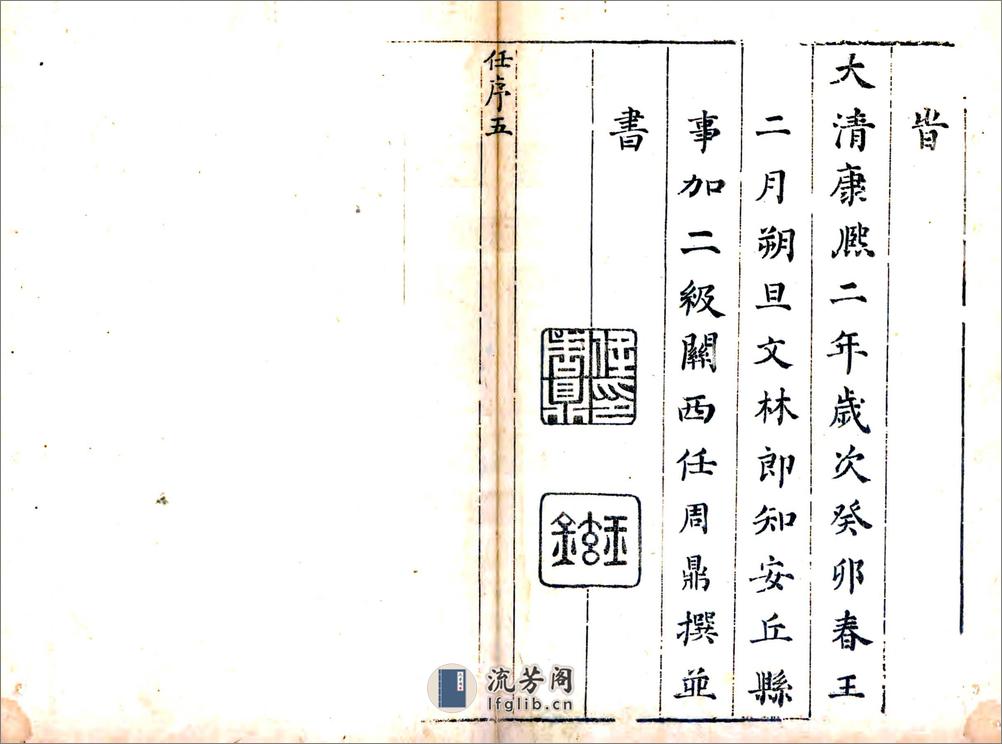 旹
大清康熙二年歲次癸卯春王
二月朔旦文林郎知安丘縣
事加二級關西任周鼎撰並
書
任印周鼎
玉鉉
任序五
流芳阁
lfglib.cn